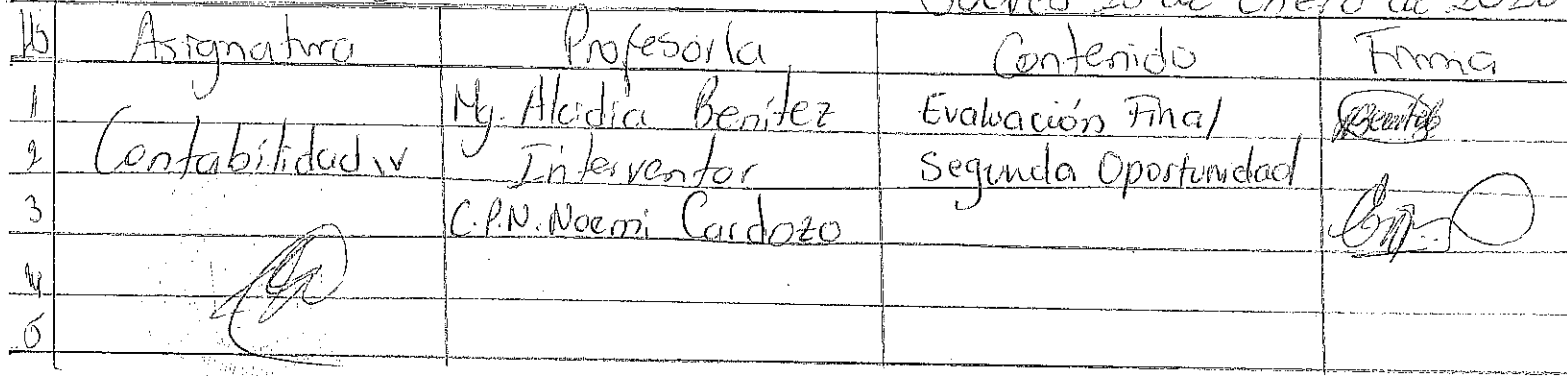 de Enero de 2020
Asignatura Profesor/a Contenido Firma
1 Mg. Alcidia Benítez Evaluación Final Benitez
2 Contabilidad IV Interventor Segunda Oportunidad
3 C.P.N. Noemi Cardozo
4
5